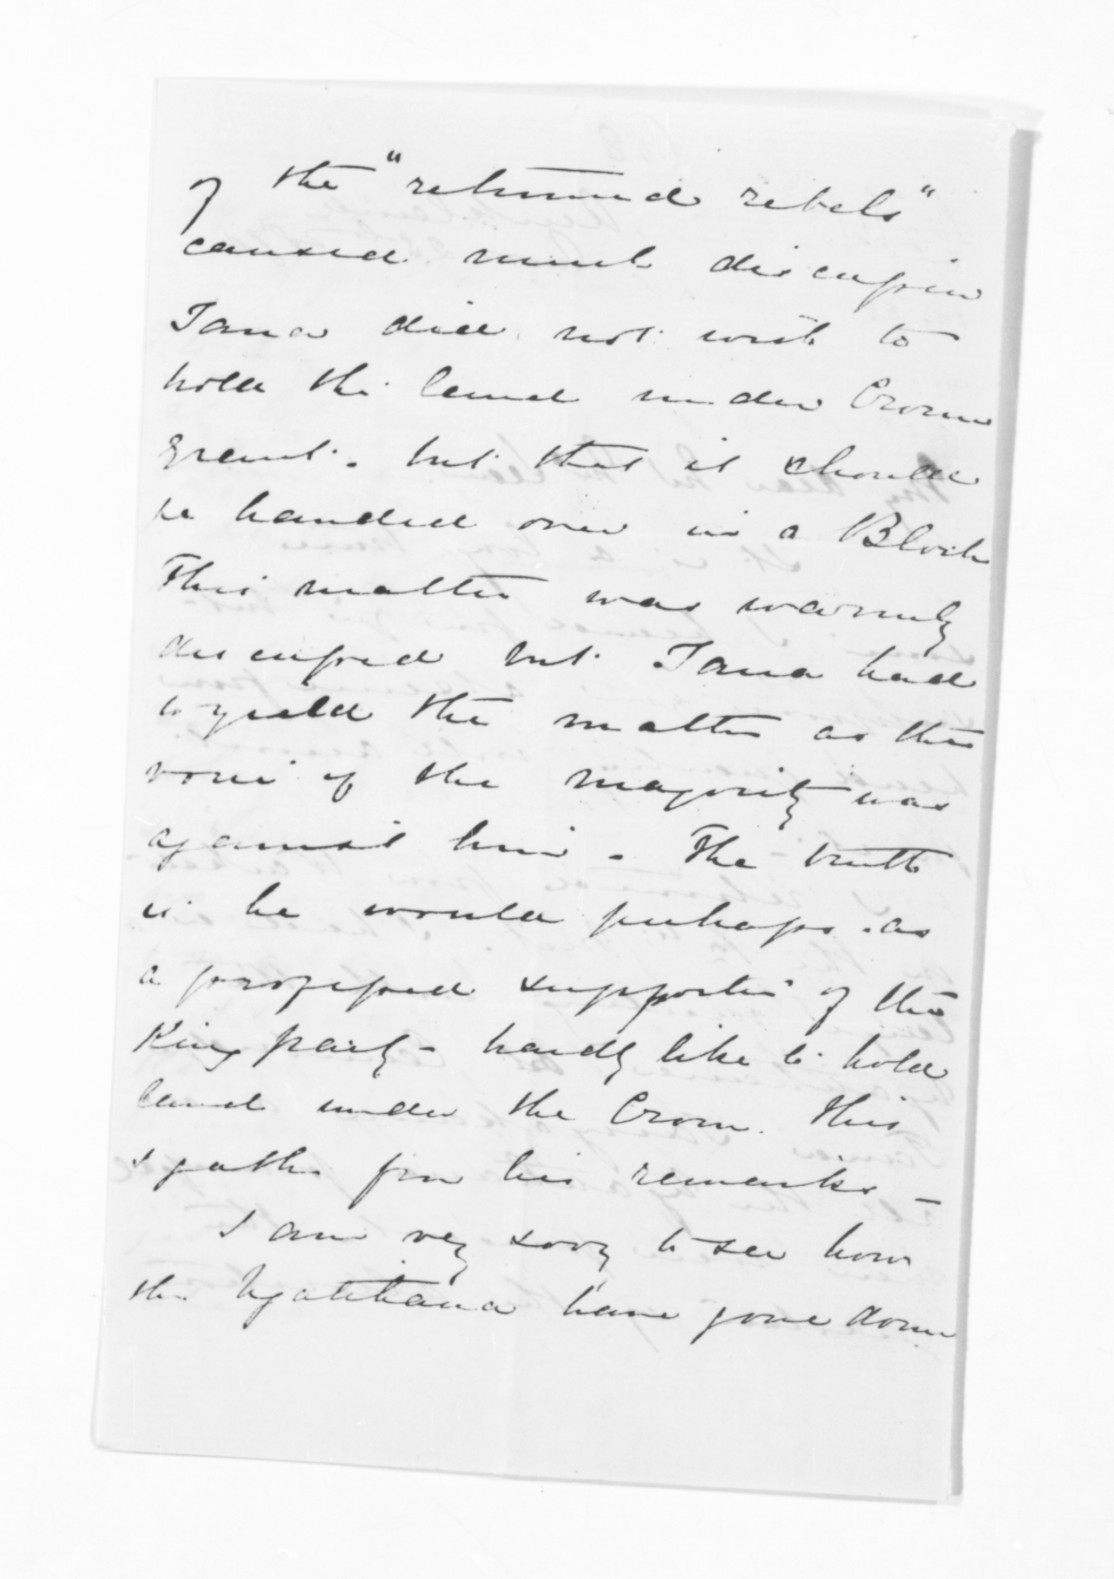 of the "returned rebels"
caused much discussion
Tana did not wish to
hold the land under Crown
grant. but that it should
be handed over in a Block
This matter was warmly
discussed but Tana had
to yield the matter as the
voice of the majority was
against him. The truth
is he would perhaps as
a professed supporter of the
King party - hardly like to hold
land under the Crown. This
I gather from his remarks -
I am very sorry to see how
the Ngatihaua have gone down